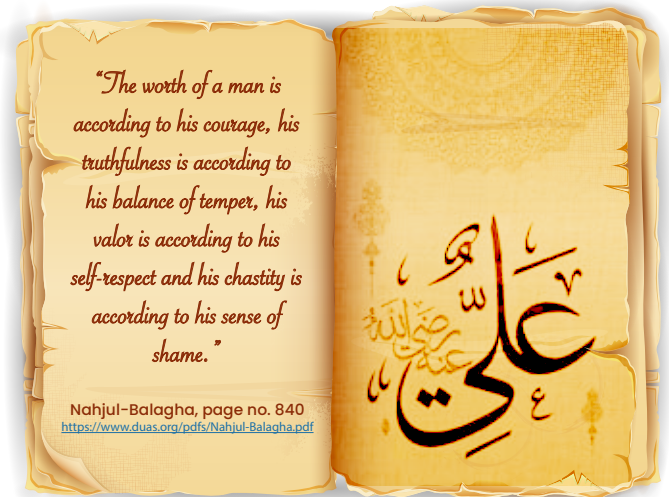 “The worth of a man is
according to his courage, his
truthfulness is according to
his balance of temper, his
valor is according to his
self-respect and his chastity is
according to his sense of
shame.”
Nahjul-Balagha, page no. 840
https://www.duas.org/pdfs/Nahjul-Balagha.pdf
عَلِيٌّ
رضي الله عنه